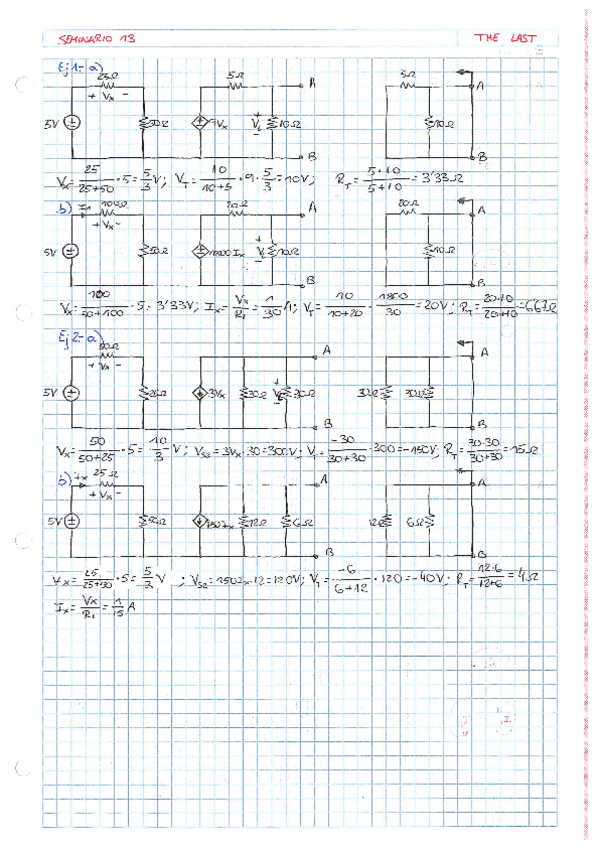 SEMINARIO 13 THE LAST
Ej 1.- a)
25Ω 5Ω 5Ω
+ Vx - A A
5V 50Ω 9Vx 10Ω 10Ω
B B
Vx = 25/(25+50) · 5 = 5/3 V ; VT = 10/(10+5) · 9 · 5/3 = 10V ; RT = (5·10)/(5+10) = 3'33Ω
b) Ix 100Ω 20Ω 20Ω
+ Vx - A A
5V 50Ω 10Ω 10Ω
B B
Vx = 100/(50+100) · 5 = 3'33V ; Ix = Vx/R1 = 1/30 A ; VT = 10/(10+20) · 1800/30 = 20V ; RT = (20·10)/(20+10) =
Ej 2.- a)
50Ω
+ Vx - A A
5V 25Ω 3Vx 30Ω 30Ω 30Ω 30Ω
B B
Vx = 50/(50+25) · 5 = 10/3 V ; VS2 = 3Vx · 30 = 300V ; VT = -30/(30+30) · 300 = -150V ; RT = (30·30)/(30+30) = 15Ω
b) Ix 25Ω
+ Vx - A A
5V 50Ω 150Ix 12Ω 6Ω 12Ω 6Ω
B B
Vx = 25/(25+50) · 5 = 5/3 V ; VS2 = 150Ix · 12 = 120V ; VT = -6/(6+12) · 120 = -40V ; RT = (12·6)/(12+6) = 4Ω
Ix = Vx/R1 = 1/15 A